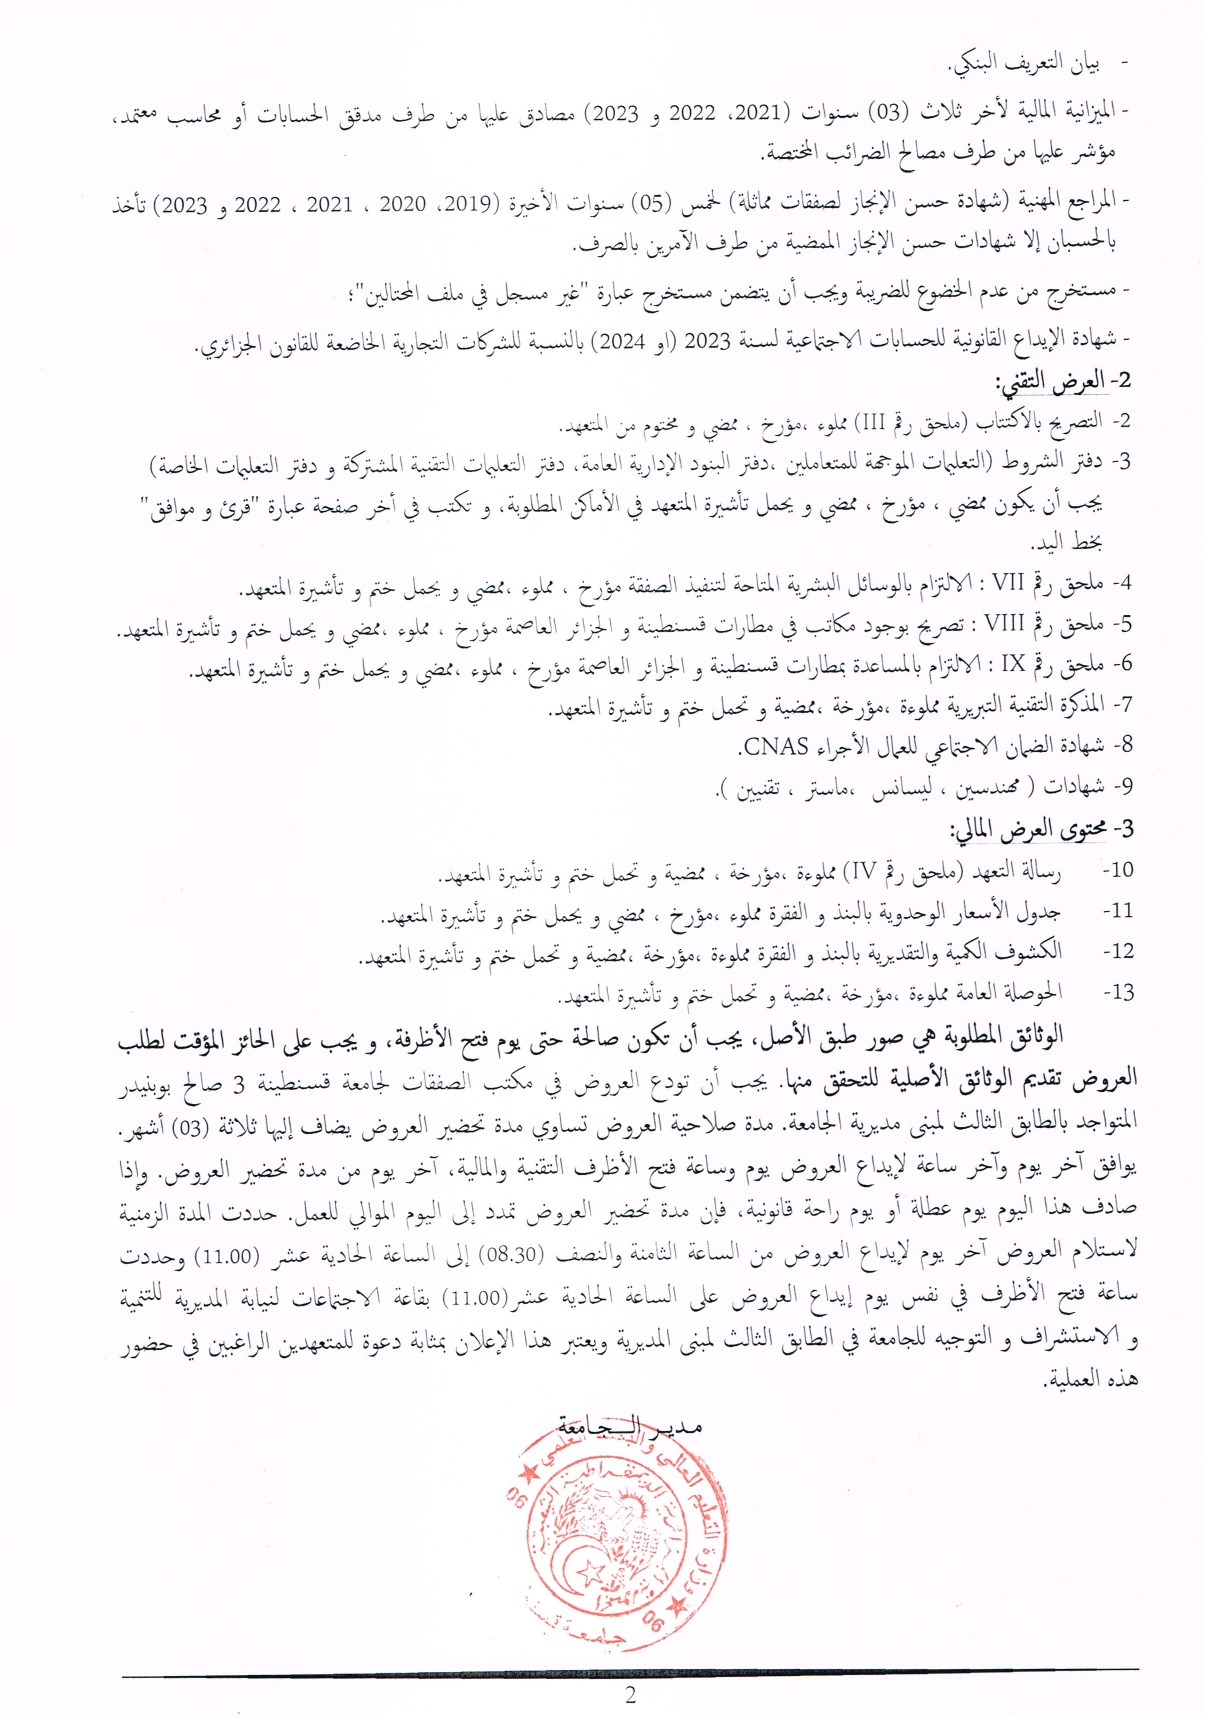 - بيان التعريف البنكي.
- الميزانية المالية لأخر ثلاث (03) سنوات (2021، 2022 و 2023) مصادق عليها من طرف مدقق الحسابات أو محاسب معتمد،
مؤشر عليها من طرف مصالح الضرائب المختصة.
- المراجع المهنية (شهادة حسن الإنجاز لصفقات مماثلة) لخمس (05) سنوات الأخيرة (2019، 2020 ، 2021 ، 2022 و 2023) تأخذ
بالحسبان إلا شهادات حسن الإنجاز الممضية من طرف الآمرين بالصرف.
- مستخرج من عدم الخضوع للضريبة ويجب أن يتضمن مستخرج عبارة "غير مسجل في ملف المحتالين"؛
- شهادة الإيداع القانونية للحسابات الاجتماعية لسنة 2023 (او 2024) بالنسبة للشركات التجارية الخاضعة للقانون الجزائري.
2- العرض التقني:
2- التصريح بالاكتتاب (ملحق رقم III) مملوء ،مؤرخ ، ممضي و مختوم من المتعهد.
3- دفتر الشروط (التعليمات الموجهة للمتعاملين ،دفتر البنود الإدارية العامة، دفتر التعليمات التقنية المشتركة و دفتر التعليمات الخاصة)
يجب أن يكون ممضي ، مؤرخ ، ممضي و يحمل تأشيرة المتعهد في الأماكن المطلوبة، و تكتب في أخر صفحة عبارة "قرئ و موافق"
بخط اليد.
4- ملحق رقم VII : الالتزام بالوسائل البشرية المتاحة لتنفيذ الصفقة مؤرخ ، مملوء ،ممضي و يحمل ختم و تأشيرة المتعهد.
5- ملحق رقم VIII : تصريح بوجود مكاتب في مطارات قسنطينة و الجزائر العاصمة مؤرخ ، مملوء ،ممضي و يحمل ختم و تأشيرة المتعهد.
6- ملحق رقم IX : الالتزام بالمساعدة بمطارات قسنطينة و الجزائر العاصمة مؤرخ ، مملوء ،ممضي و يحمل ختم و تأشيرة المتعهد.
7- المذكرة التقنية التبريرية مملوءة ،مؤرخة ،ممضية و تحمل ختم و تأشيرة المتعهد.
8- شهادة الضمان الاجتماعي للعمال الأجراء CNAS.
9- شهادات ( مهندسين ، ليسانس ،ماستر ، تقنيين ).
3- محتوى العرض المالي:
10- رسالة التعهد (ملحق رقم IV) مملوءة ،مؤرخة ، ممضية و تحمل ختم و تأشيرة المتعهد.
11- جدول الأسعار الوحدوية بالبنذ و الفقرة مملوء ،مؤرخ ، ممضي و يحمل ختم و تأشيرة المتعهد.
12- الكشوف الكمية والتقديرية بالبنذ و الفقرة مملوءة ،مؤرخة ،ممضية و تحمل ختم و تأشيرة المتعهد.
13- الحوصلة العامة مملوءة ،مؤرخة ،ممضية و تحمل ختم و تأشيرة المتعهد.
الوثائق المطلوبة هي صور طبق الأصل، يجب أن تكون صالحة حتى يوم فتح الأظرفة، و يجب على الحائز المؤقت لطلب
العروض تقديم الوثائق الأصلية للتحقق منها. يجب أن تودع العروض في مكتب الصفقات لجامعة قسنطينة 3 صالح بوبنيدر
المتواجد بالطابق الثالث لمبنى مديرية الجامعة. مدة صلاحية العروض تساوي مدة تحضير العروض يضاف إليها ثلاثة (03) أشهر.
يوافق آخر يوم وآخر ساعة لإيداع العروض يوم وساعة فتح الأظرف التقنية والمالية، آخر يوم من مدة تحضير العروض. وإذا
صادف هذا اليوم يوم عطلة أو يوم راحة قانونية، فإن مدة تحضير العروض تمدد إلى اليوم الموالي للعمل. حددت المدة الزمنية
لاستلام العروض آخر يوم لإيداع العروض من الساعة الثامنة والنصف (08.30) إلى الساعة الحادية عشر (11.00) وحددت
ساعة فتح الأظرف في نفس يوم إيداع العروض على الساعة الحادية عشر(11.00) بقاعة الاجتماعات لنيابة المديرية للتنمية
و الاستشراف و التوجيه للجامعة في الطابق الثالث لمبنى المديرية ويعتبر هذا الإعلان بمثابة دعوة للمتعهدين الراغبين في حضور
هذه العملية.
مدير الـجـامعة
وزارة التعليم العالي والبحث العلمي
الجزائرية الديمقراطية الشعبية
06
06
جامعة
2